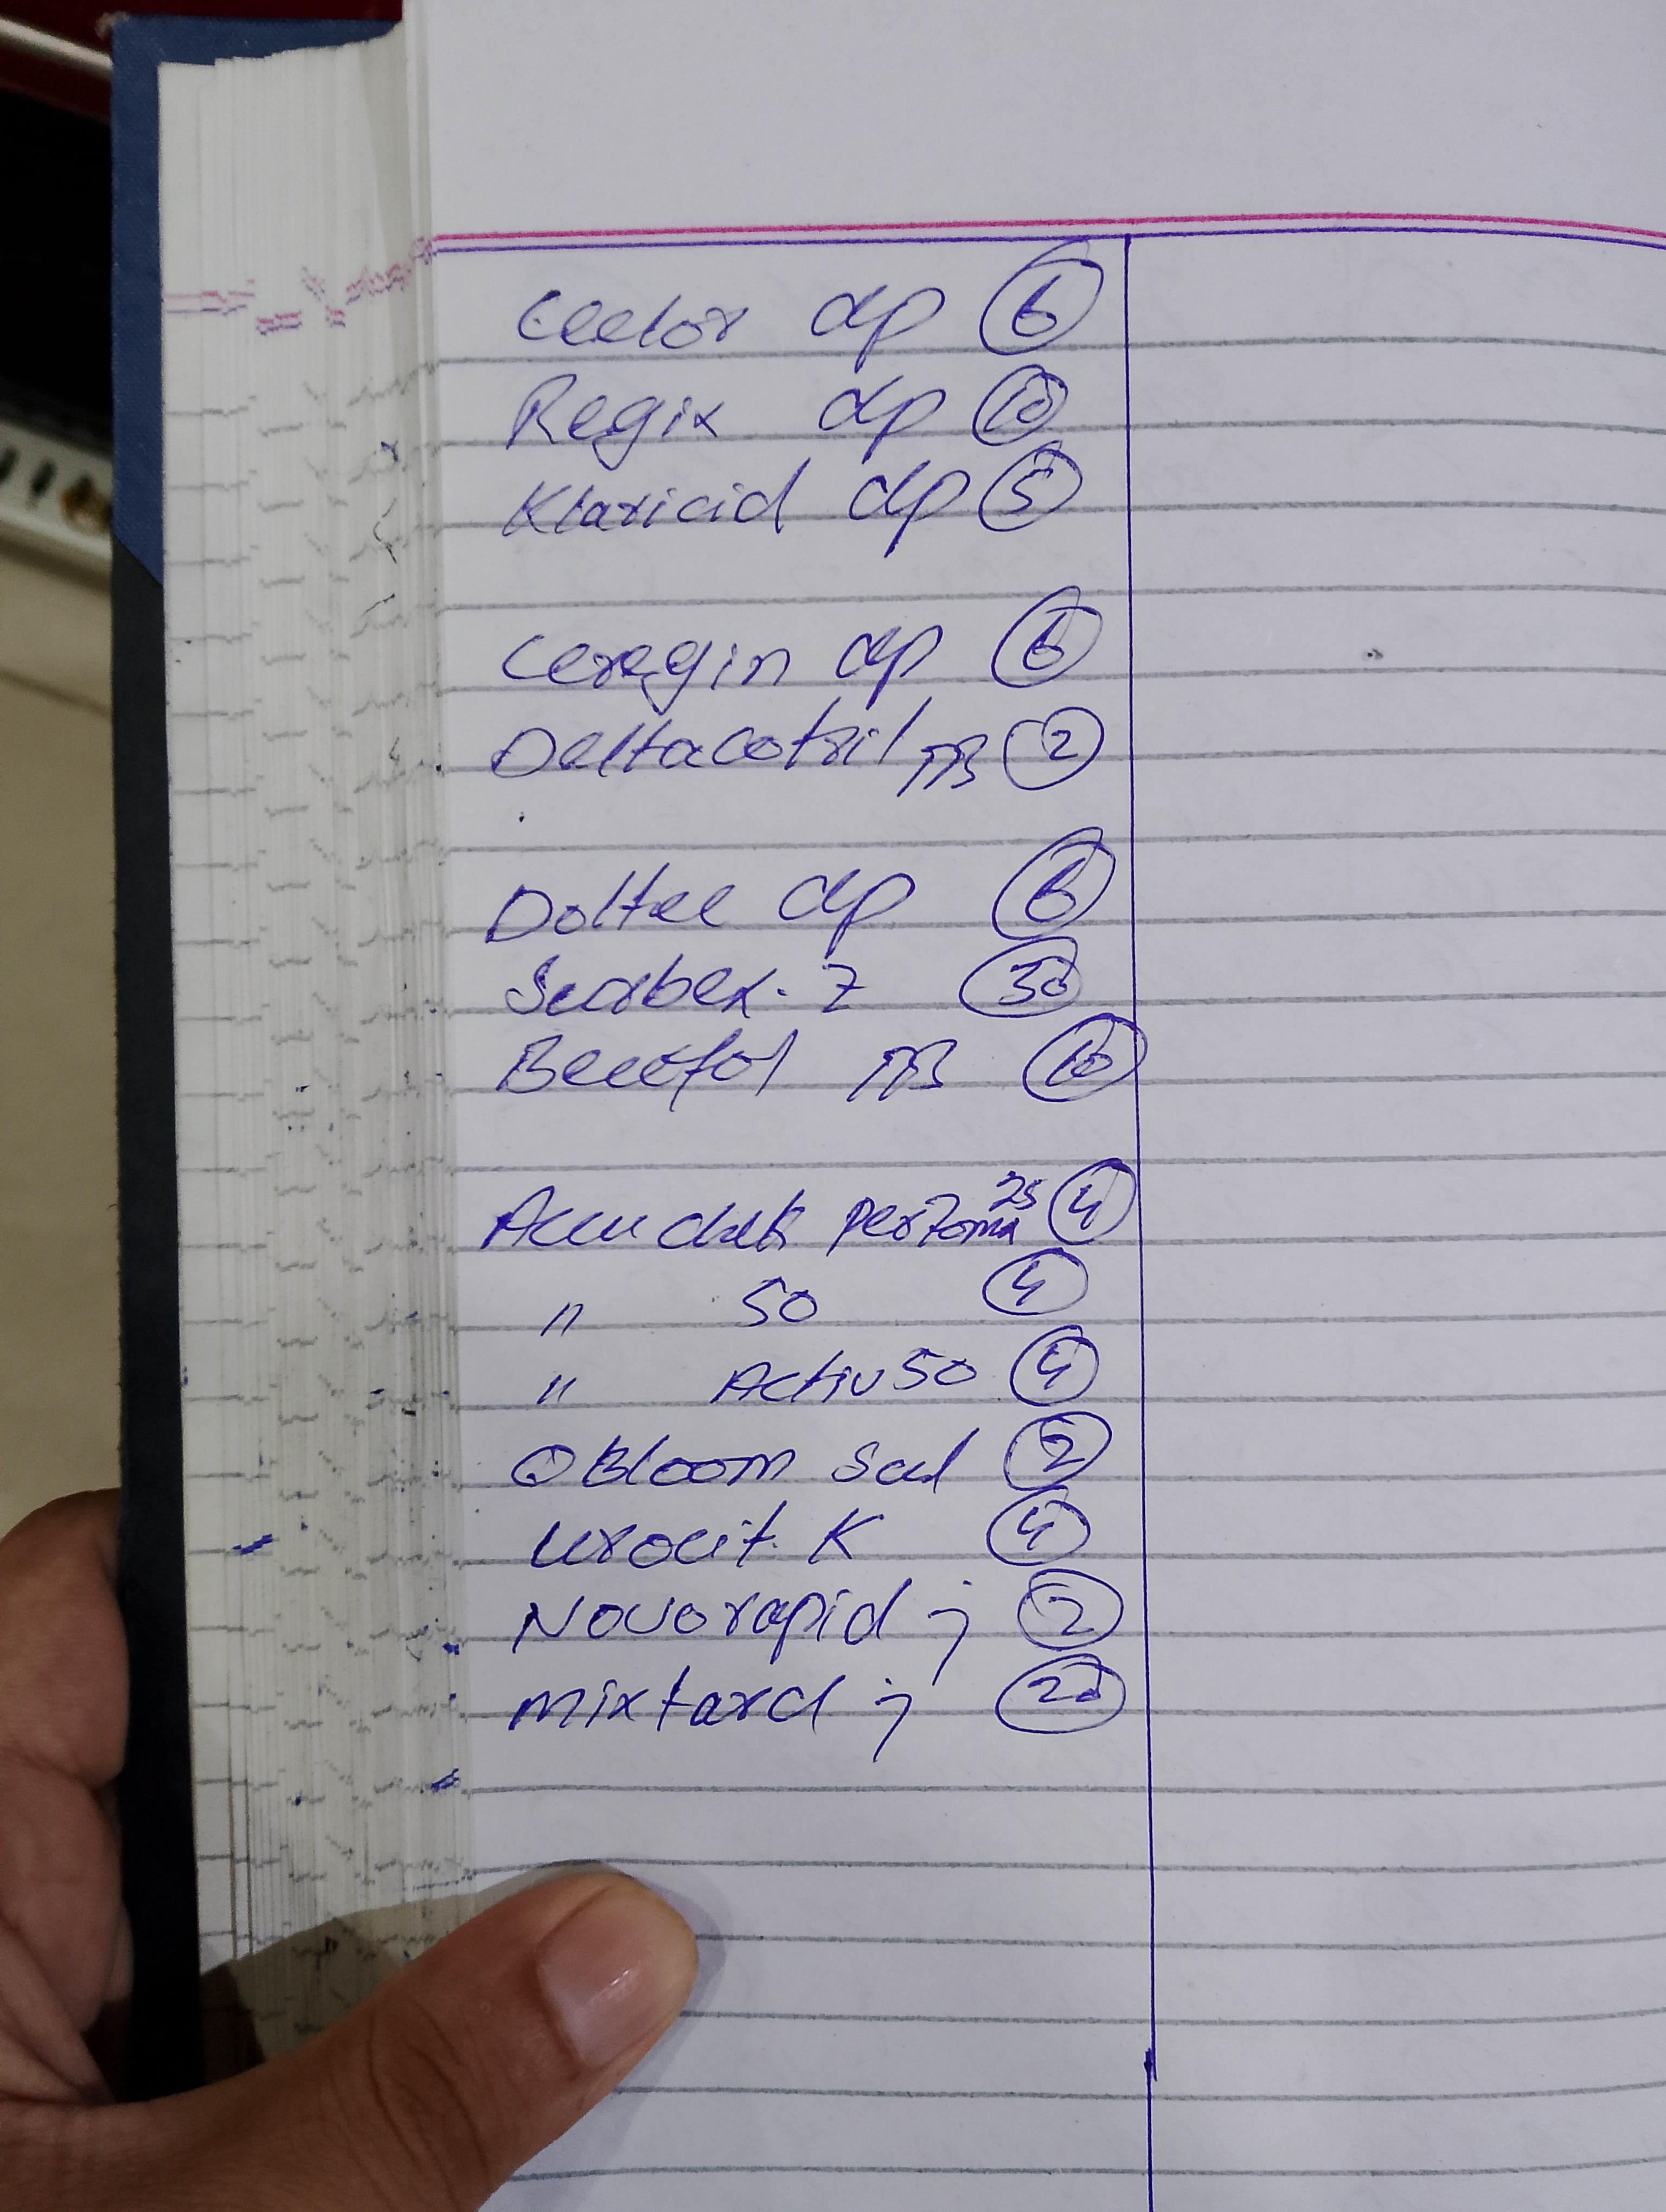 Ceclor dp 6
Regix dp 10
Klaricid dp 5
Ceregin dp 6
Deltacotril 2
Doltee dp 6
Surbex. Z 30
Becefol 10
Accu chek Perfoma 25 4
" 50 4
" Activ 50 4
OBloom Sad 2
Urocit. K 4
Novorapid j 2
Mixtard j 20